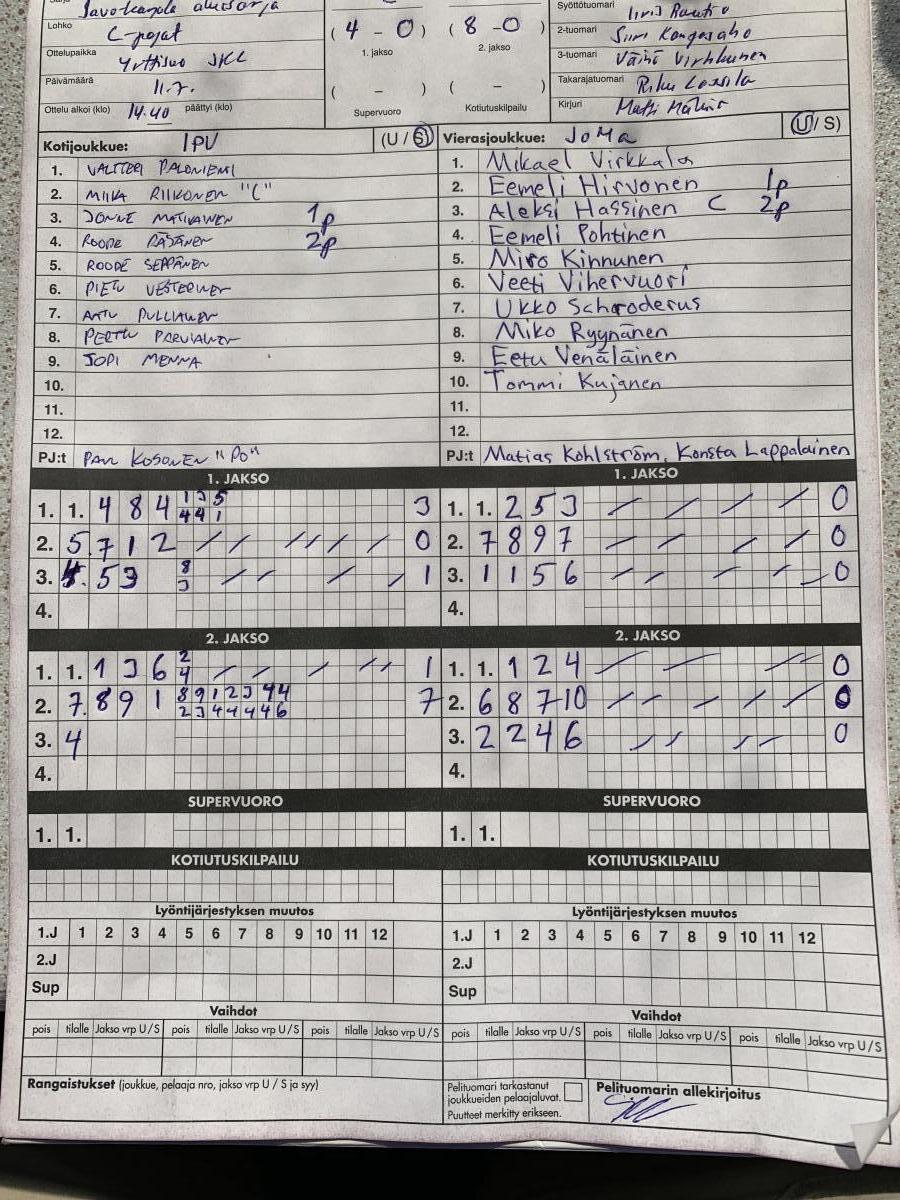 Savo-Karjala aluesarja
Lohko C-pojat
Ottelupaikka Yrttisuo JKL
Päivämäärä 11.7.
Ottelu alkoi (klo) 14.40 päättyi (klo)
( 4 - 0 ) ( 8 - 0 )
1. jakso 2. jakso
( - ) ( - )
Supervuoro Kotiutuskilpailu
Syöttötuomari
2-tuomari Siiri Kongasaho
3-tuomari Väinö Virkkunen
Takarajatuomari Riku
Kirjuri Matti
Kotijoukkue: IPV (U / S)
1. VALTTERI PALONIEMI
2. MIIKA RIIKONEN "C"
3. JONNE MATIKAINEN 1p
4. ROOPE RÄSÄNEN 2p
5. ROOPE SEPPÄNEN
6. PIETU VESTERINEN
7. AATU PULLIAINEN
8. PERTTU PARVIAINEN
9. JOPI MENNA
10.
11.
12.
PJ:t PAVI KOSONEN "PO"
Vierasjoukkue: JoMa (U / S)
1. Mikael Virkkala
2. Eemeli Hirvonen 1p
3. Aleksi Hassinen C 2p
4. Eemeli Pohtinen
5. Miro Kinnunen
6. Veeti Vihervuori
7. Ukko Schroderus
8. Miko Ryynänen
9. Eetu Venäläinen
10. Tommi Kujanen
11.
12.
PJ:t Matias Kohlström, Konsta Lappalainen
1. JAKSO
1. 1. 4 8 4 1 3 5 3
4 4 1
2. 5. 7 1 2 0
3. 4. 5 3 8 1
3
4.
1. JAKSO
1. 1. 2 5 3 0
2. 7 8 9 7 0
3. 1 1 5 6 0
4.
2. JAKSO
1. 1. 1 3 6 2 1
4
2. 7. 8 9 1 8 9 1 2 3 4 4 7
2 3 4 4 4 4 6
3. 4
4.
2. JAKSO
1. 1. 1 2 4 0
2. 6 8 7 10 0
3. 2 2 4 6 0
4.
SUPERVUORO
1. 1.
SUPERVUORO
1. 1.
KOTIUTUSKILPAILU
KOTIUTUSKILPAILU
Lyöntijärjestyksen muutos
1.J 1 2 3 4 5 6 7 8 9 10 11 12
2.J
Sup
Lyöntijärjestyksen muutos
1.J 1 2 3 4 5 6 7 8 9 10 11 12
2.J
Sup
Vaihdot
pois tilalle Jakso vrp U / S pois tilalle Jakso vrp U / S pois tilalle Jakso vrp U / S
Vaihdot
pois tilalle Jakso vrp U / S pois tilalle Jakso vrp U / S pois tilalle Jakso vrp U / S
Rangaistukset (joukkue, pelaaja nro, jakso vrp U / S ja syy)
Pelituomari tarkastanut
joukkueiden pelaajaluvat.
Puutteet merkitty erikseen.
Pelituomarin allekirjoitus